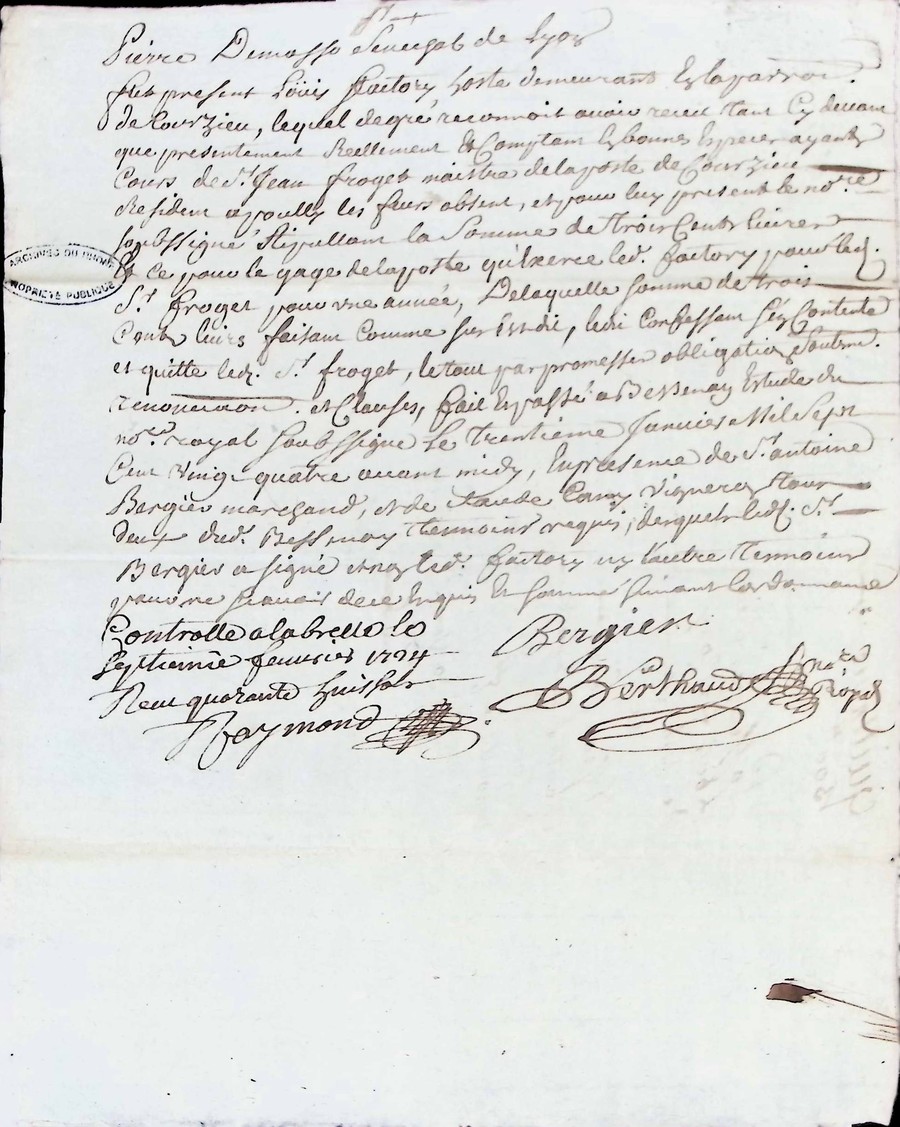 Pierre Demasso Senechal de Lyon
fut present Loüis factory hoste demeurant En la parroi.
de Courzieu, lequel de gré reconnoit avoir receu tant Cy devant
que presentement Reellement Et Comptant En bonnes Especes ayants
Cours de Sr. Jean froget maistre de la poste de Courzieu
Resident a poully les feurs absent, et pour luy present le nore.
soubssigné stipullant la Somme de trois Cents Livres
Et ce pour le gage de la poste qu'Exerce led. factory pour led.
Sr. froget pour une année, De laquelle somme de trois
Cents livrs faisant Comme sus Est dit, led. Confessant s'en Contente
et quitte led. Sr. froget, le tout par promesses obligations Soubm.
renonciation. et Clauses, fait Et passé a Bessenay Estude du
nore. royal Soubssigné Le trentieme Janvier Mil Sept
Cent vingt quatre avant midy, En presence de Sr. antoine
Bergier marchand, et de Claude Camy Vigneron tous
deux dud. Bessenay tesmoins requis, desquels led. Sr.
Bergier a signé et non led. factory ny l'autre tesmoins
pour ne scavoir de ce Enquis Et sommé suivant l'ordonnance
Controllé a la brelle le
Septieme fevrier 1724
Receu quarante huit sols
Raymond
Bergier
Berthaud nore
royal
ARCHIVES DU RHONE
PROPRIÉTÉ PUBLIQUE